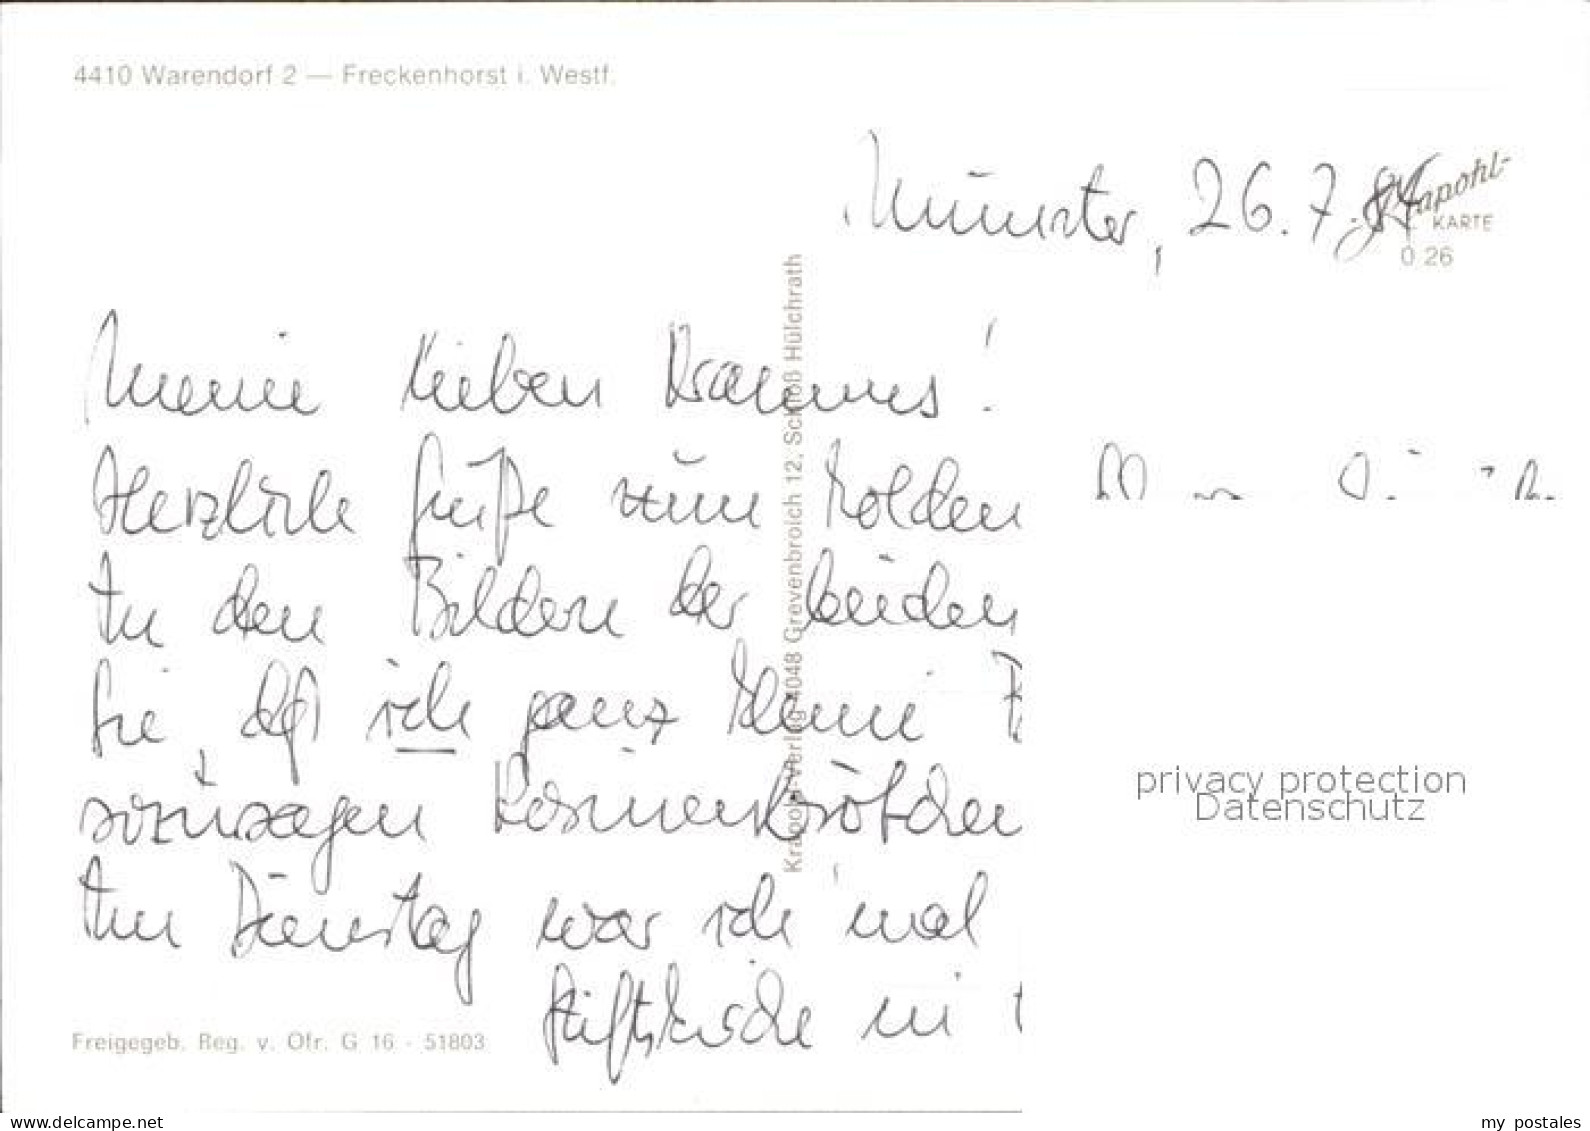 4410 Warendorf 2 — Freckenhorst i. Westf.
Münster, 26.7.84
Krapohl-
KARTE
0 26
Meine lieben
Herzliche Grüße zum
den Bildern der beiden
Sie, daß ich ganz
sozusagen
Am Dienstag war ich mal
Stiftskirche in
Krapohl-Verlag 4048 Grevenbroich 12, Schloß Hülchrath
Freigegeb. Reg. v. Ofr. G 16 - 51803
privacy protection
Datenschutz
www.delcampe.net
my_postales